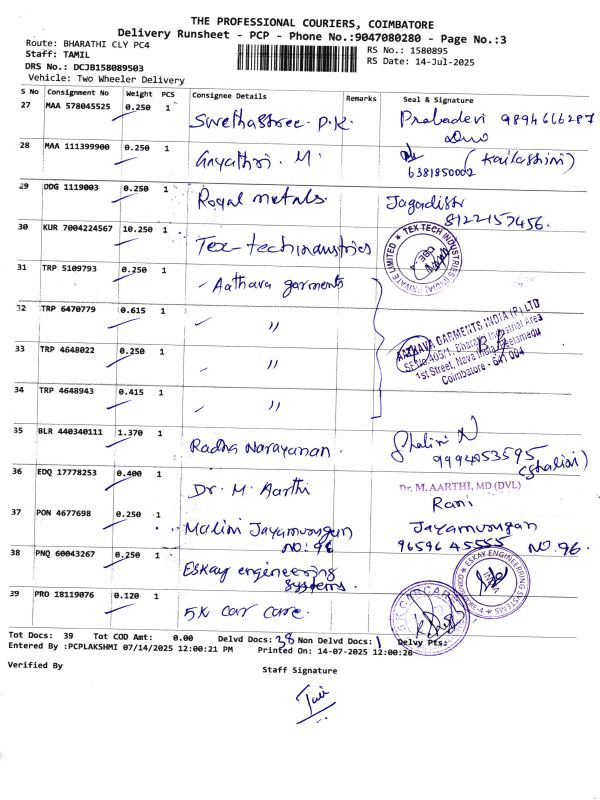 THE PROFESSIONAL COURIERS, COIMBATORE
Delivery Runsheet - PCP - Phone No.:9047080280 - Page No.:3
Route: BHARATHI CLY PC4 RS No.: 1580895
Staff: TAMIL RS Date: 14-Jul-2025
DRS No.: DCJB158089503
Vehicle: Two Wheeler Delivery
S No Consignment No Weight PCS Consignee Details Remarks Seal & Signature
27 MAA 578045525 0.250 1 Swethashree. P.K. Prabadevi 9894666287
28 MAA 111399900 0.250 1 Gayathri. M (Kailashini)
6381850002
29 DDG 1119003 0.250 1 Royal metals. Jagadistr
8122157456.
30 KUR 7004224567 10.250 1 Tex-tech industries TEX TECH INDUSTRIES (INDIA) PRIVATE LIMITED CBE 4
31 TRP 5109793 0.250 1 Aathava garments
32 TRP 6470779 0.615 1 "
AATHAVA GARMENTS INDIA (P) LTD
SF.No.405/1, Bharathi Industrial Area
1st Street, Nava India, Peelamedu
Coimbatore - 641 004
33 TRP 4648022 0.250 1 "
34 TRP 4648943 0.415 1 "
35 BLR 440340111 1.370 1 Radha Narayanan. Shalini N
9994053595
(Shalini)
36 EDQ 17778253 0.400 1 Dr. M. Aarthi Dr. M.AARTHI, MD (DVL)
Rani
37 PON 4677698 0.250 1 Malini Jayamurugan Jayamurugan
NO. 96 96596 45555 NO. 96.
38 PNQ 60043267 0.250 1 Eskay engineering ESKAY ENGINEERING SYSTEMS
systems.
39 PRO 18119076 0.120 1 5K car care.
Tot Docs: 39 Tot COD Amt: 0.00 Delvd Docs: 38 Non Delvd Docs: 1 Delvy Pts:
Entered By :PCPLAKSHMI 07/14/2025 12:00:21 PM Printed On: 14-07-2025 12:00:26
Verified By Staff Signature